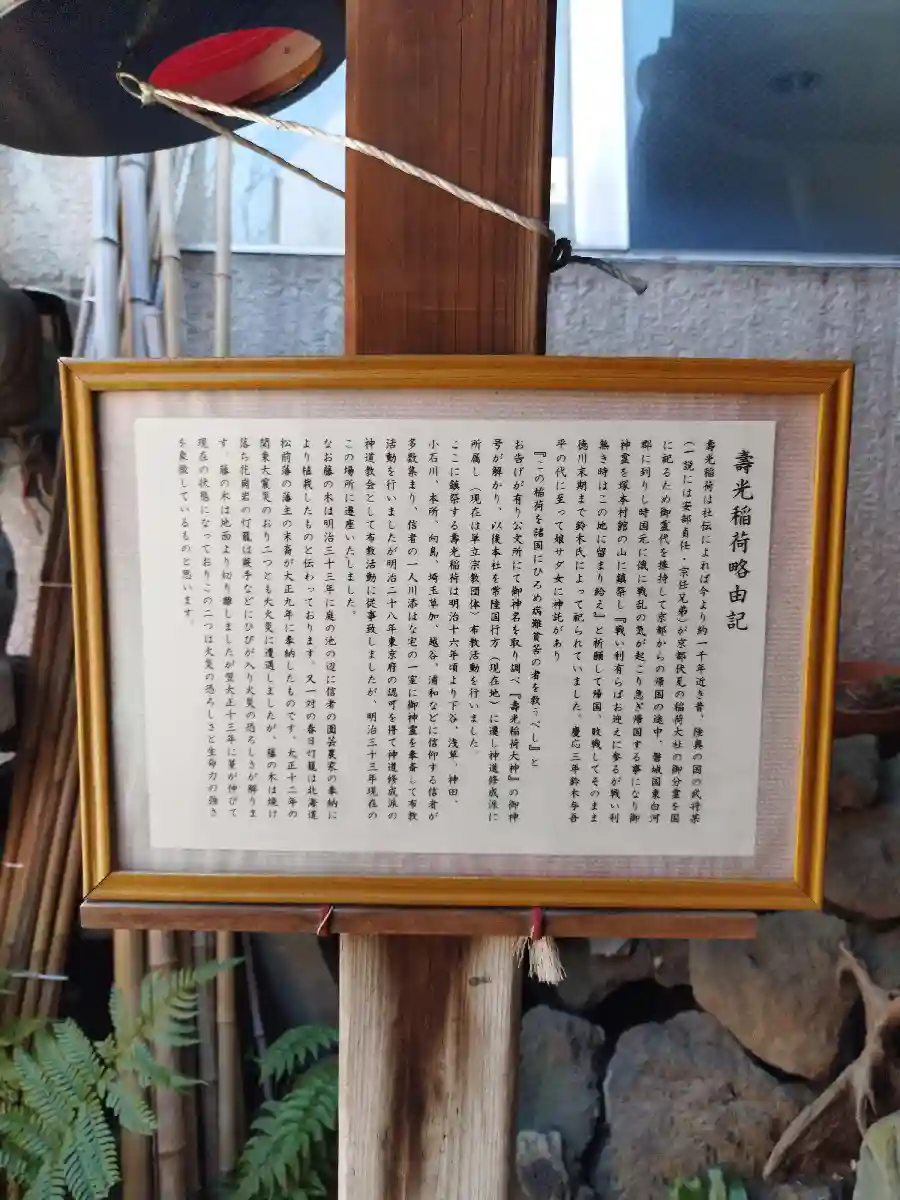 壽光稲荷略由記
壽光稲荷は社伝によれば今より約一千年近き昔、陸奥の国の武将某
(一説には安部貞任・宗任兄弟)が京都伏見の稲荷大社の御分霊を国
に祀るため御霊代を捧持して京都からの帰国の途中、磐城国東白河
郡に到りし時国元に俄に戦乱の気が起こり急ぎ帰国する事になり御
神霊を塚本村館の山に鎮祭し『戦い利有らばお迎えに参るが戦い利
無き時はこの地に留まり給え』と祈願して帰国、敗戦してそのまま
徳川末期まで鈴木氏によって祀られていました。慶応三年鈴木与吾
平の代に至って娘サダ女に神託があり
『この稲荷を諸国にひろめ病難貧苦の者を救うべし』と
お告げが有り公文所にて御神名を取り調べ『壽光稲荷大神』の御神
号が解かり、以後本社を常陸国行方(現在地)に遷し神道修成派に
所属し(現在は単立宗教団体)布教活動を行いました。
ここに鎮祭する壽光稲荷は明治十六年頃より下谷、浅草、神田、
小石川、本所、向島、埼玉草加、越谷、浦和などに信仰する信者が
多数集まり、信者の一人川添はな宅の一室に御神霊を奉斎して布教
活動を行いましたが明治二十八年東京府の認可を得て神道修成派の
神道教会として布教活動に従事致しましたが、明治三十三年現在の
この場所に遷座いたしました。
なお藤の木は明治三十三年に庭の池の辺に信者の園芸農家の奉納に
より植栽したものと伝わっております。又一対の春日灯籠は北海道
松前藩の藩主の末裔が大正九年に奉納したものです。大正十二年の
関東大震災のおり二つとも大火災に遭遇しましたが、藤の木は焼け
落ち花崗岩の灯籠は蕨手などにひびが入り火災の恐ろしさが解りま
す。藤の木は地面より切り離しましたが翌大正十三年に芽が伸びて
現在の状態になっておりこの二つは火災の恐ろしさと生命力の強さ
を象徴しているものと思います。